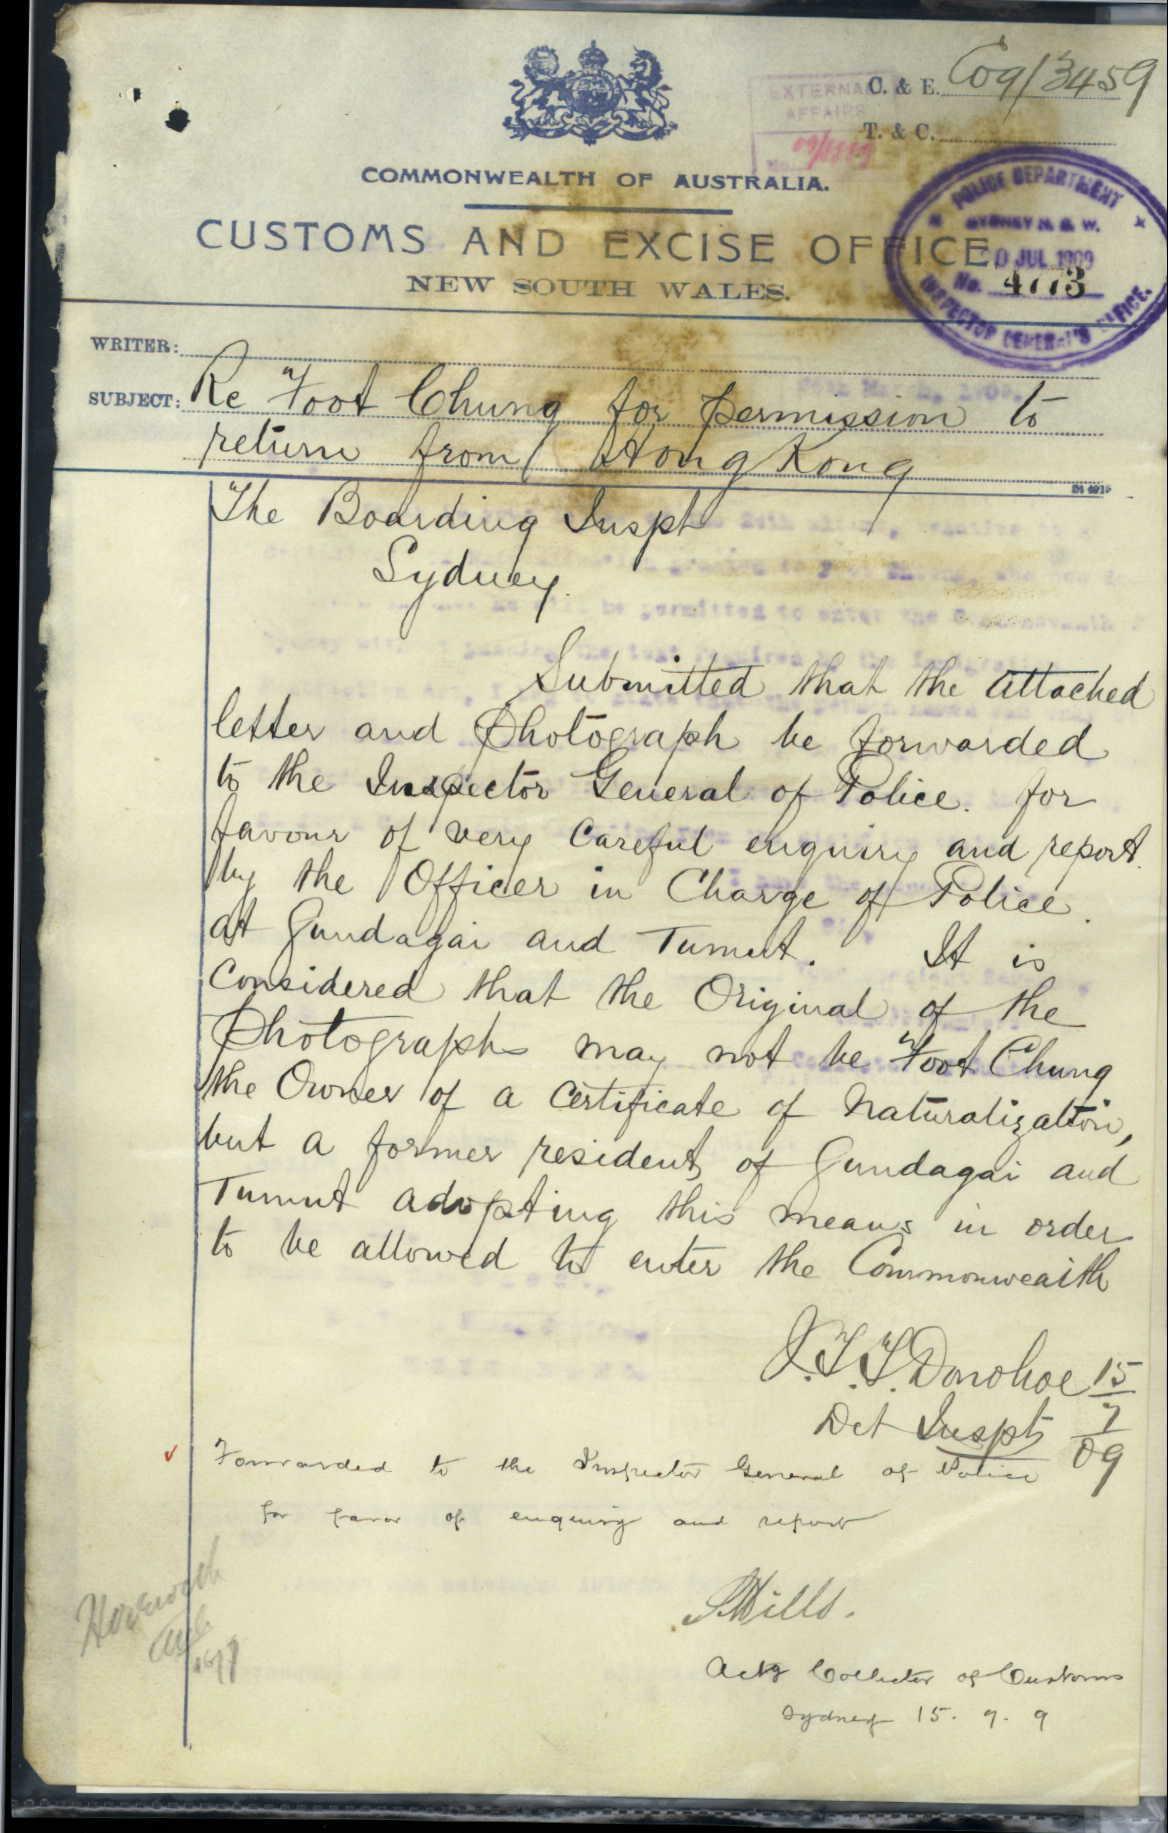 C. & E. C09/3459
EXTERNAL
AFFAIRS
T. & C.
COMMONWEALTH OF AUSTRALIA.
CUSTOMS AND EXCISE OFFICE
NEW SOUTH WALES.
POLICE DEPARTMENT
SYDNEY N. S. W.
JUL 1909
No. 4773
INSPECTOR GENERAL'S OFFICE.
WRITER:
SUBJECT: Re Foot Chung for permission to
return from Hong Kong
The Boarding Inspt
Sydney.
Submitted that the attached
letter and Photograph be forwarded
to the Inspector General of Police. for
favour of very careful enquiry and report.
by the Officer in Charge of Police.
at Gundagai and Tumut. It is
Considered that the Original of the
Photographs may not be Foot Chung
the Owner of a Certificate of Naturalization,
but a former resident of Gundagai and
Tumut adopting this means in order
to be allowed to enter the Commonwealth
J.T.T. Donohoe 15/7/09
Det Inspt
Forwarded to the Inspector General of Police
for favor of enquiry and report
S Mills.
Actg Collector of Customs
Sydney 15. 7. 9